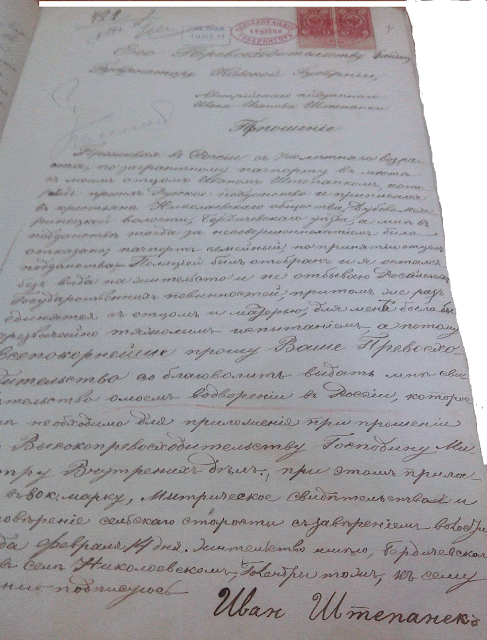 Его Превосходительству Господину
Губернатору Киевской Губернии
Австрийского подданнаго
Ивана Иванова Штепанека
Прошеніе
Проживая въ Россіи съ лѣтняго возра-
ста, по заграничному паспорту въ мѣстѣ
съ моимъ отцомъ Иваномъ Штепанкомъ, кото-
рый принялъ Русское подданство и приписался
въ крестьяне Николаевскаго общества
волости, Бердичевскаго уѣзда, а мнѣ въ
подданствѣ тогда за несовершеннолѣтіемъ было
отказано; паспортъ семейный по принятіи отцемъ
подданства Полиціей былъ отобранъ и я остался
безъ вида на жительство и не отбываю Россійскихъ
Государственныхъ повинностей, притомъ же раз
единятся съ отцомъ и матерью, для меня было бы
чрезвычайно тяжолымъ испытаніемъ, а потому
всепокорнейше прошу Ваше Превосхо-
дительство соблаговолить выдать мнѣ сви
дѣтельство о моемъ водвореніи въ Россіи, которое
необходимо для приложенія при прошеніи
Высокопревосходительству Господину Ми
стру Внутреннихъ дѣлъ, при этомъ прила
марку, Метрическое свидѣтельство и
сельскаго старосты съ завѣреніемъ
февраля 14 дня. Жительство имѣю, Бердичевскаго
въ селѣ Николаевскомъ, къ сему
подписуюсь
Иван Штепанекъ